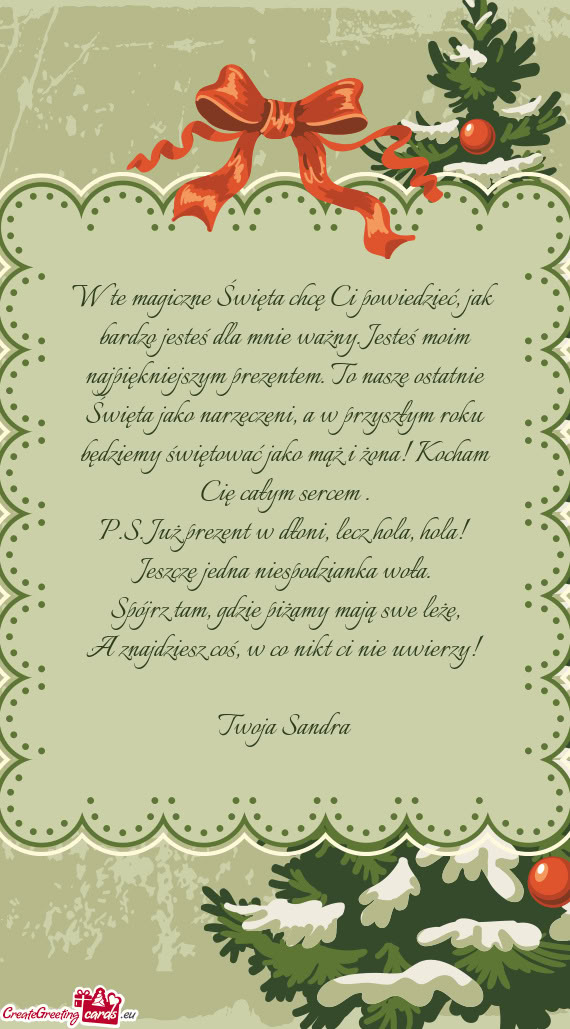 W te magiczne Święta chcę Ci powiedzieć, jak
bardzo jesteś dla mnie ważny. Jesteś moim
najpiękniejszym prezentem. To nasze ostatnie
Święta jako narzeczeni, a w przyszłym roku
będziemy świętować jako mąż i żona! Kocham
Cię całym sercem .
P.S. Już prezent w dłoni, lecz hola, hola!
Jeszcze jedna niespodzianka woła.
Spójrz tam, gdzie piżamy mają swe leże,
A znajdziesz coś, w co nikt ci nie uwierzy!
Twoja Sandra
CreateGreeting cards .eu